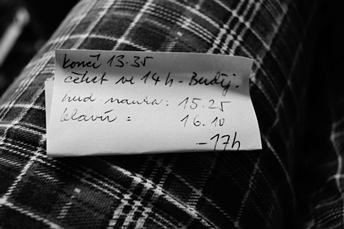 končí 13.35
čekat ve 14h - Buděj.
hud nauka: 15.25
klavír = 16.10
-17h